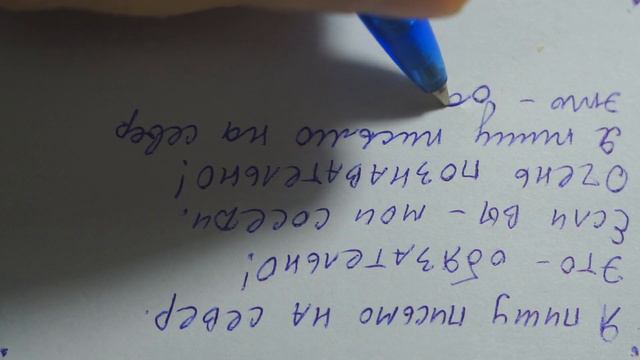 Я пишу письмо на север.
Это - обязательно!
Если вы - мои соседи.
Очень познавательно!
Я пишу письмо на север
Это - оч